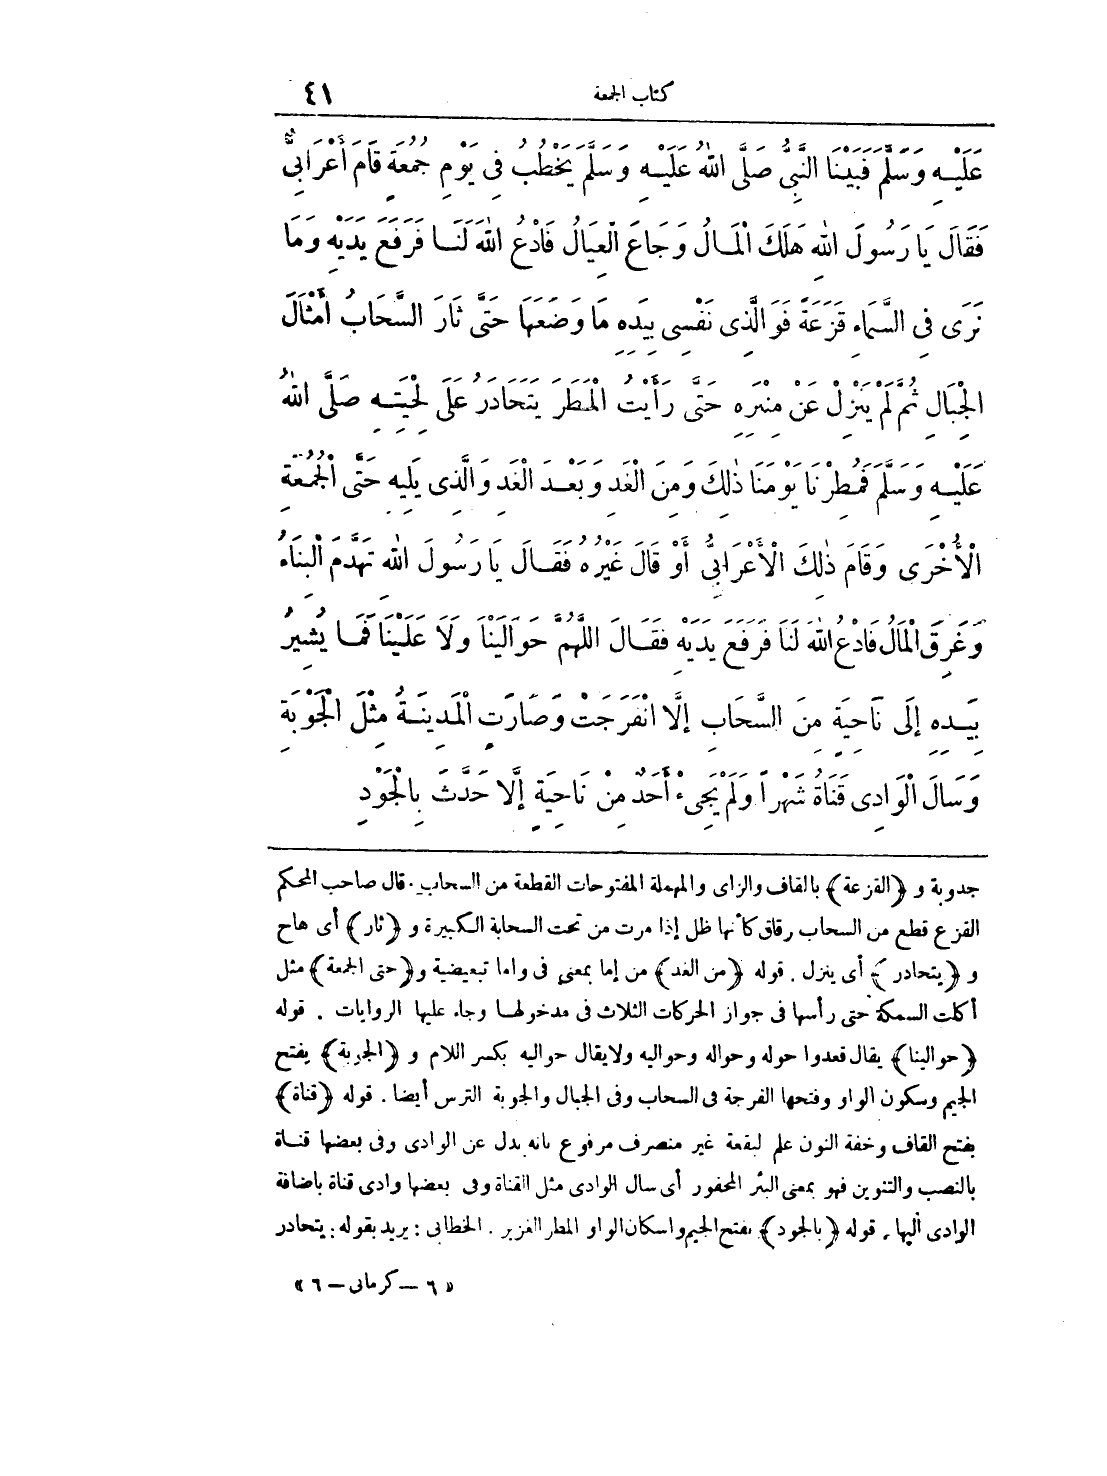 كتاب الجمعة ٤١
عَلَيْهِ وَسَلَّمَ فَبَيْنَا النَّبِيُّ صَلَّى اللهُ عَلَيْهِ وَسَلَّمَ يَخْطُبُ فِى يَوْمِ جُمُعَةٍ قَامَ أَعْرَابِيٌّ
فَقَالَ يَا رَسُولَ اللهِ هَلَكَ الْمَالُ وَجَاعَ الْعِيَالُ فَادْعُ اللهَ لَنَا فَرَفَعَ يَدَيْهِ وَمَا
نَرَى فِى السَّمَاءِ قَزَعَةً فَوَالَّذِى نَفْسِى بِيَدِهِ مَا وَضَعَهَا حَتَّى ثَارَ السَّحَابُ أَمْثَالَ
الْجِبَالِ ثُمَّ لَمْ يَنْزِلْ عَنْ مِنْبَرِهِ حَتَّى رَأَيْتُ الْمَطَرَ يَتَحَادَرُ عَلَى لِحْيَتِهِ صَلَّى اللهُ
عَلَيْهِ وَسَلَّمَ فَمُطِرْنَا يَوْمَنَا ذٰلِكَ وَمِنَ الْغَدِ وَبَعْدَ الْغَدِ وَالَّذِى يَلِيهِ حَتَّى الْجُمُعَةِ
الْأُخْرَى وَقَامَ ذٰلِكَ الْأَعْرَابِيُّ أَوْ قَالَ غَيْرُهُ فَقَالَ يَا رَسُولَ اللهِ تَهَدَّمَ الْبِنَاءُ
وَغَرِقَ الْمَالُ فَادْعُ اللهَ لَنَا فَرَفَعَ يَدَيْهِ فَقَالَ اللَّهُمَّ حَوَالَيْنَا وَلَا عَلَيْنَا فَمَا يُشِيرُ
بِيَدِهِ إِلَى نَاحِيَةٍ مِنَ السَّحَابِ إِلَّا انْفَرَجَتْ وَصَارَتِ الْمَدِينَةُ مِثْلَ الْجَوْبَةِ
وَسَالَ الْوَادِى قَنَاةُ شَهْراً وَلَمْ يَجِىءْ أَحَدٌ مِنْ نَاحِيَةٍ إِلَّا حَدَّثَ بِالْجَوْدِ
جدوبة و ﴿القزعة﴾ بالقاف والزاى والمهملة المفتوحات القطعة من السحاب. قال صاحب المحكم
القزع قطع من السحاب رقاق كأنها ظل إذا مرت من تحت السحابة الكبيرة و ﴿ثار﴾ أى هاج
و ﴿يتحادر﴾ أى ينزل. قوله ﴿من الغد﴾ من إما بمعنى فى واما تبعيضية و﴿حتى الجمعة﴾ مثل
أكلت السمكة حتى رأسها فى جواز الحركات الثلاث فى مدخولها وجاء عليها الروايات. قوله
﴿حوالينا﴾ يقال قعدوا حوله وحواله وحواليه ولايقال حواليه بكسر اللام و ﴿الجوبة﴾ بفتح
الجيم وسكون الواو وفتحها الفرجة فى السحاب وفى الجبال والجوبة الترس أيضا. قوله ﴿قناة﴾
بفتح القاف وخفة النون علم لبقعة غير منصرف مرفوع بانه بدل عن الوادى وفى بعضها قناة
بالنصب والتنوين فهو بمعنى البئر المحفور أى سال الوادى مثل القناة وفى بعضها وادى قناة باضافة
الوادى اليها. قوله ﴿بالجود﴾ بفتح الجيم واسكان الواو المطر الغزير. الخطابى: يريد بقوله: يتحادر
« ٦ — كرمانى — ٦ »